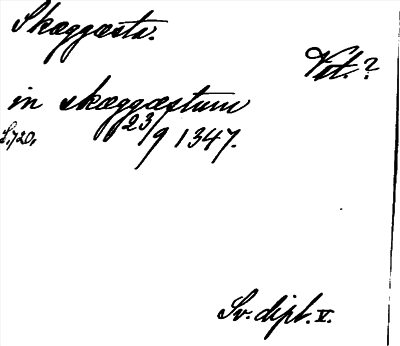 Skæggesta.
Vst.?
in skæggæstum
S. 720. 23/9 1347.
Sv. dipl. V.